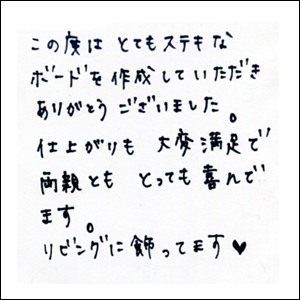 この度は とてもステキな
ボードを作成していただき
ありがとう ございました。
仕上がりも 大変満足で
両親とも とっても喜んで
ます。
リビングに飾ってます♥